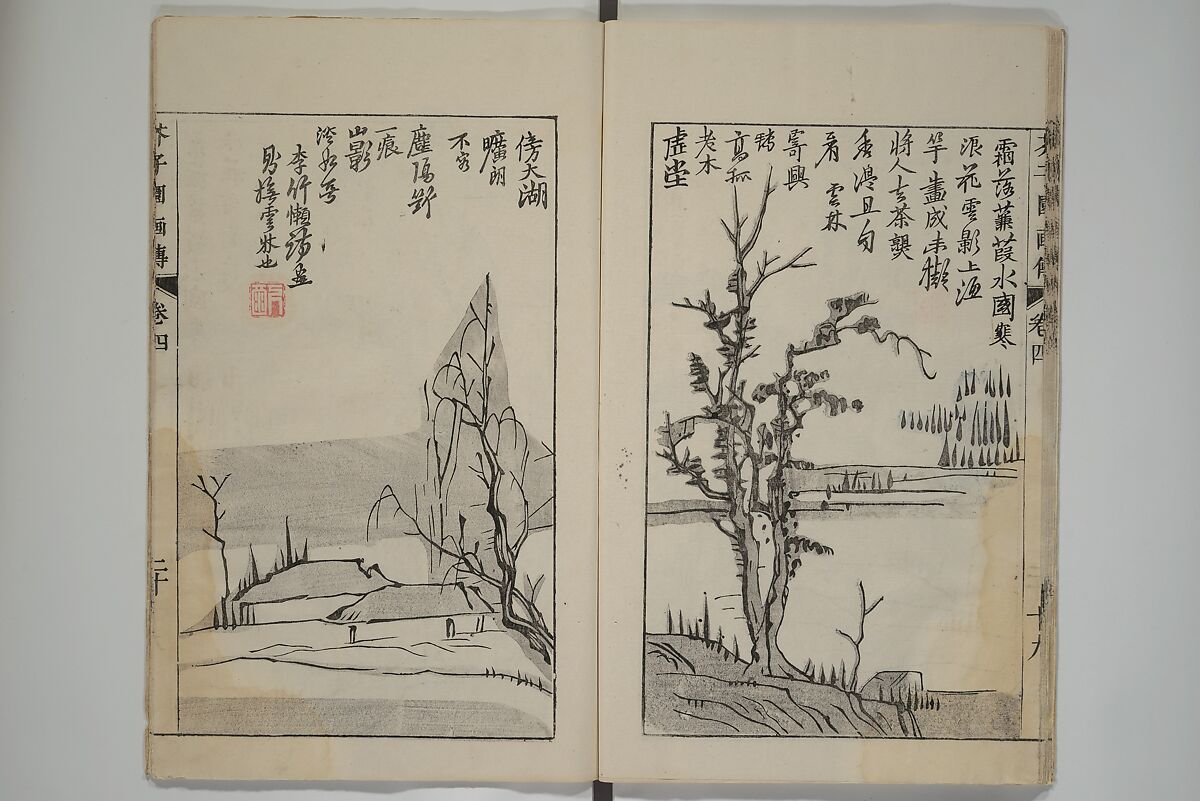 芥子園画傳
卷四
十九
霜落蒹葭水國寒
浪花雲影上漁
竿畫成未擬
將人去茶熟
香溫且自
看 雲林
寄興
轉
高孤
老木
虛堂
傍太湖
曠朗
不容
塵隔斷
一痕
山影
淡如無
李竹懶詩並
撫雲林也
芥子園画傳
卷四
二十